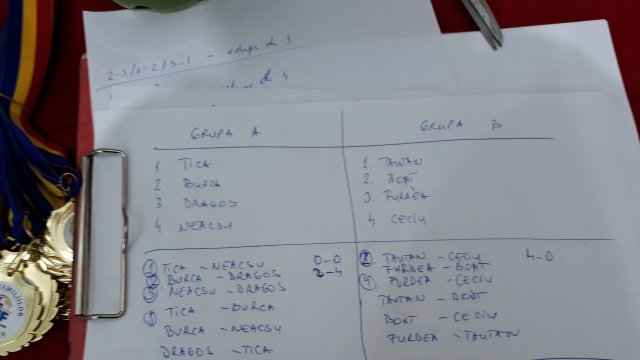 2-3/1-2/3-1 - echipe de 3
de 4
GRUPA A
1. TICA
2. BURCA
3 DRAGOS
4 NEACSU
GRUPA B
1. TAUTAN
2. BOAT
3 FURDEA
4 CECIU
1 TICA - NEACSU 0-0
2 BURCA - DRAGOS 2-4
3 NEACSU - DRAGOS
TICA - BURCA
BURCA - NEACSU
DRAGOS - TICA
TAUTAN - CECIU 4-0.
FURDEA - BOAT
4 FURDEA - CECIU
TAUTAN - BOAT
BOAT - CECIU
FURDEA - TAUTAN